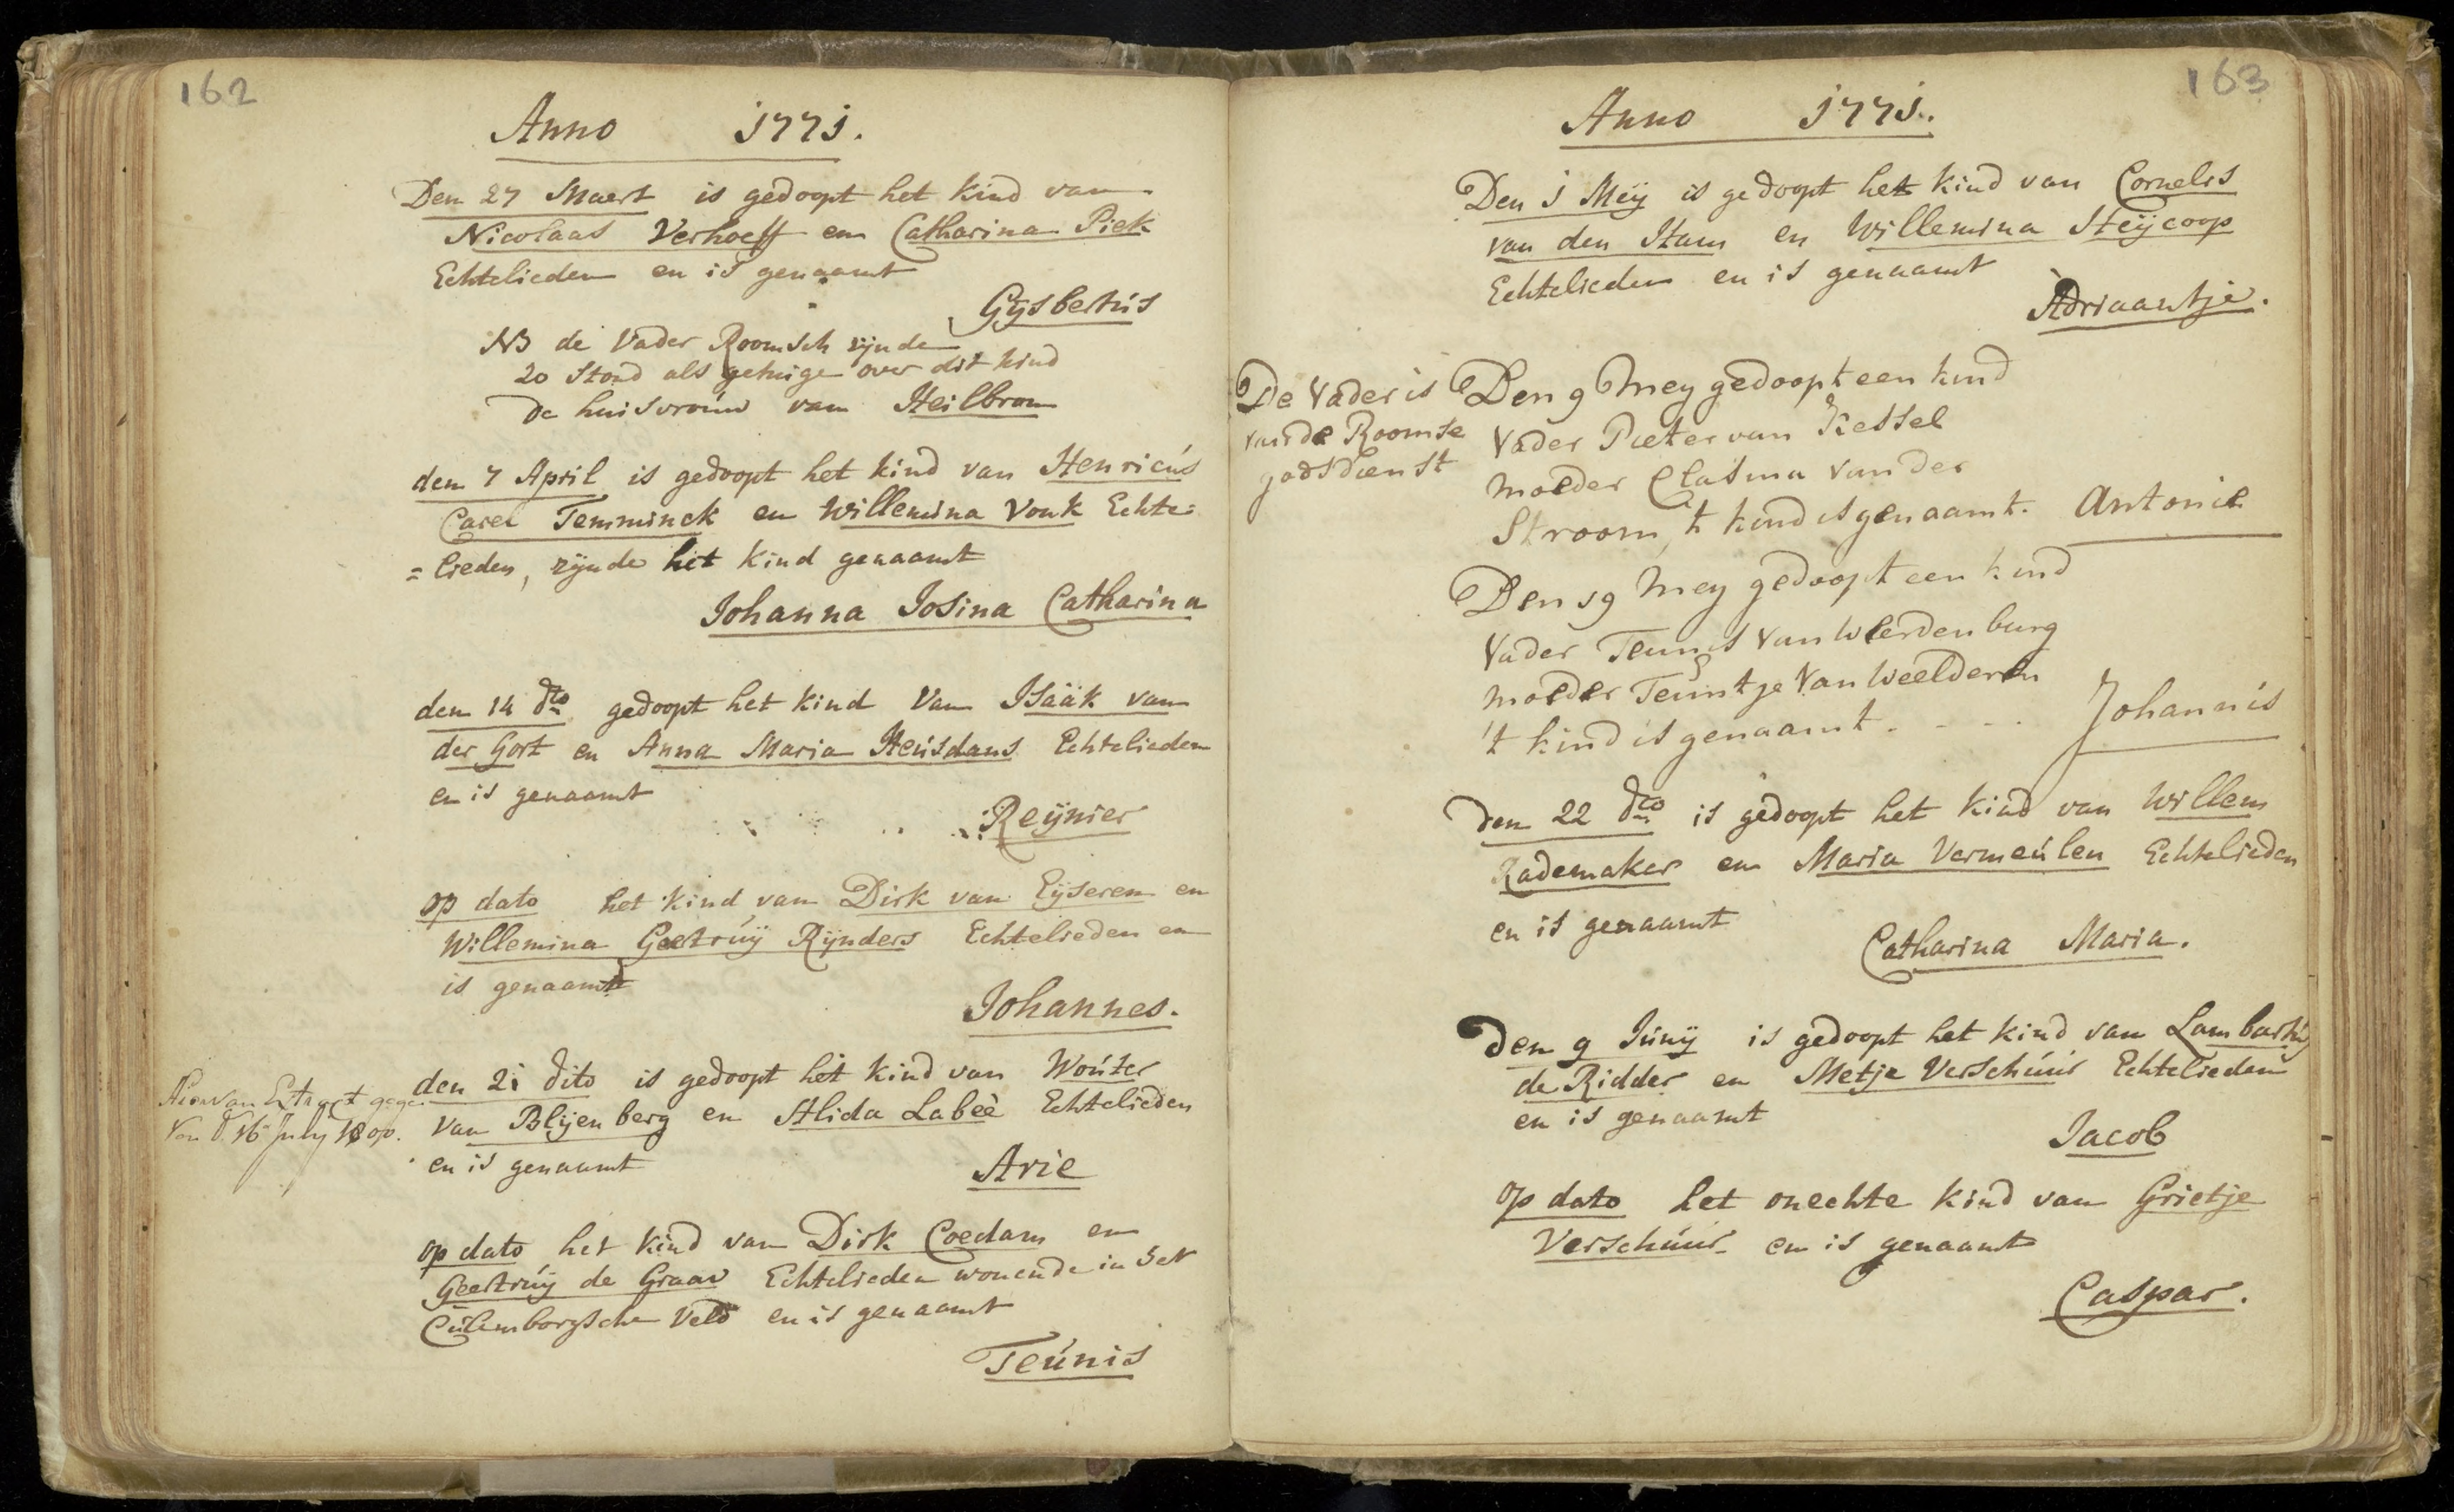 162
Anno 1771.
Den 27 Maert is gedoopt het kind van
Nicolaas Verhoeff en Catharina Piek
Echtelieden en is genaamt
Gysbertús
NB de Vader Roomsch zijnde
zo stond als getuige over dit kind
de huisvroúw van Heilbron
den 7 April is gedoopt het kind van Henricús
Carel Temminck en Willemina Vonk Echte=
=lieden, zijnde het kind genaamt
Johanna Josina Catharina
den 14 dto gedoopt het kind van Isaäk van
der Gort en Anna Maria Heúsdans Echtelieden
en is genaamt
Reÿnier
op dato het kind van Dirk van Eÿseren en
Willemina Geertrúÿ Rijnders Echtelieden en
is genaamt
Johannes.
Hiervan Extract gege
ven d. 16 July 1800.
den 21 dito is gedoopt het kind van Woúter
van Blijenberg en Alida Labeè Echtelieden
en is genaamt
Arie
op dato het kind van Dirk Coedam en
Geertrúÿ de Graav Echtelieden wonende in het
Cúlemborgsche Veld en is genaamt
Teúnis
163
Anno 1771.
Den 1 Meÿ is gedoopt het kind van Cornelis
van den Ham en Willemina Heÿcoop
Echtelieden en is genaamt
Adriaantje.
De Vader is
van de Roomse
godsdienst
Den 9 Mey gedoopt een kind
Vader Pieter van Kessel
moeder Clasina van der
Stroom, 't kind is genaamt. Antonie
Den 19 Mey gedoopt een kind
Vader Teunis van Weerdenburg
moeder Teuntje van Weelderen
't kind is genaamt. - - - . Johannis
den 22 dto is gedoopt het kind van Willem
Rademaker en Maria Vermeúlen Echtelieden
en is genaamt
Catharina Maria.
Den 9 Júnÿ is gedoopt het kind van Lambartús
de Ridder en Metje Verschúúr Echtelieden
en is genaamt
Jacob
op dato het onechte kind van Grietje
Verschúúr en is genaamt
Caspar.